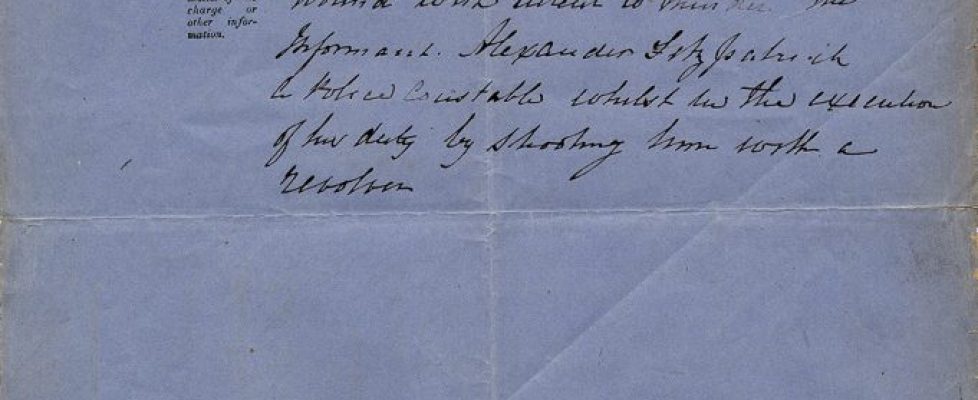 charge or
other infor-
mation.
wound with intent to murder the
Informant. Alexander Fitzpatrick
a Police Constable whilst in the execution
of his duty by shooting him with a
revolver